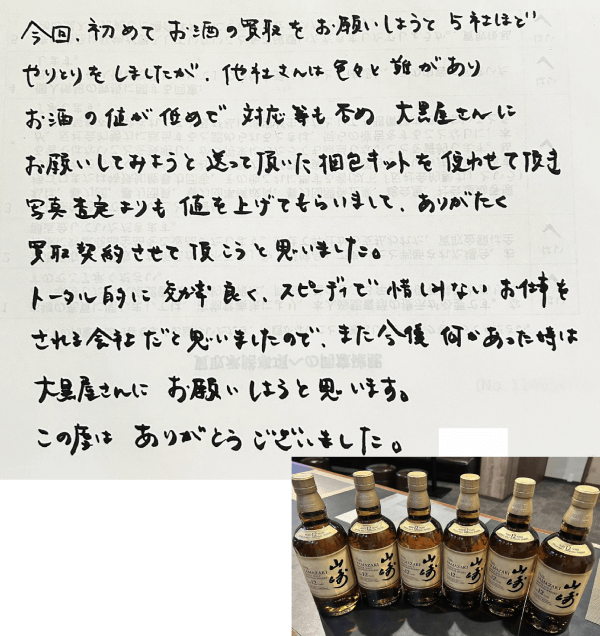 今回、初めてお酒の買取をお願いしようと5社ほど
やりとりをしましたが、他社さんは色々と難があり
お酒の値が低めで対応等も否め 大黒屋さんに
お願いしてみようと送って頂いた梱包キットを使わせて頂き
写真査定よりも値を上げてもらいまして、ありがたく
買取契約させて頂こうと思いました。
トータル的に効率良く、スピーディで惜しみないお仕事を
される会社だと思いましたので、また今後何かあった時は
大黒屋さんにお願いしようと思います。
この度はありがとうございました。
山崎
YAMAZAKI
12
山崎
YAMAZAKI
12
山崎
YAMAZAKI
12
山崎
YAMAZAKI
12
山崎
YAMAZAKI
12
山崎
YAMAZAKI
12